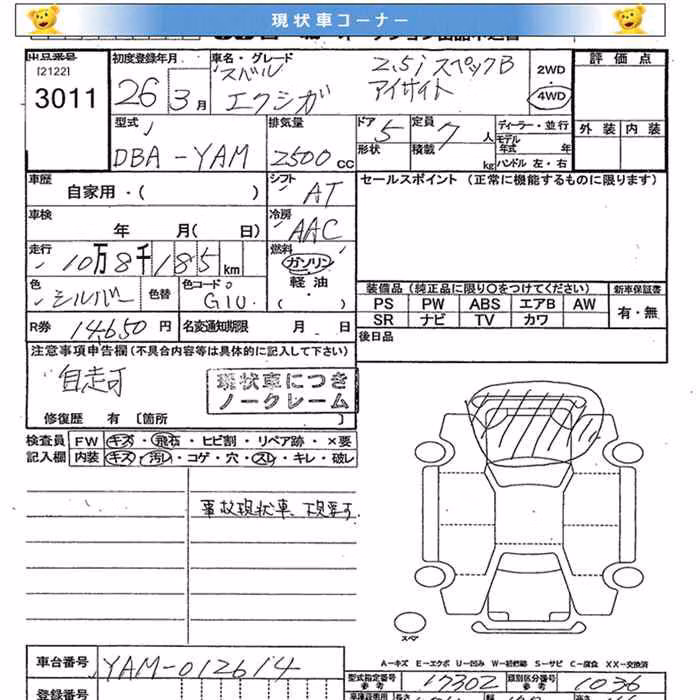 現状車コーナー
出品番号 初度登録年月 車名・グレード 2.5i スペックB 2WD 評価点
[2122] スバル アイサイト 4WD
3011 26 3月 エクシガ
外装 内装
型式 排気量 ドア 5 定員 7人 ディーラー・並行
DBA-YAM 2500cc 形状 積載 kg モデル年式 年
ハンドル 左・右
車歴 シフト セールスポイント (正常に機能するものに限ります)
自家用・( ) AT
車検 冷房
年 月( 日) AAC
走行 燃料
10万8千185km ガソリン
軽油
色 色替 色コード ( )
シルバー G1U
装備品 (純正品に限り○をつけてください) 新車保証書
PS PW ABS エアB AW 有・無
SR ナビ TV カワ
R券 14650円 名変通知期限 月 日 後日品
注意事項申告欄(不具合内容等は具体的に記入して下さい)
自走可
現状車につき
ノークレーム
修復歴 有 〔箇所 〕
検査員 FW キズ・飛石・ヒビ割・リペア跡・×要
記入欄 内装 キズ・汚レ・コゲ・穴・スレ・キレ・破レ
事故現状車、下見要す
スペア
A-キズ E-エクボ U-凹み W-補修跡 S-サビ C-腐食 XX-交換済
車台番号 YAM-012614
型式指定番号 参考 17302 類別区分番号 参考 1036
登録番号